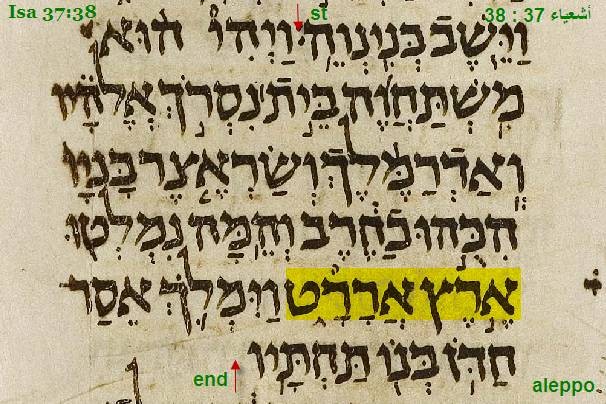 Isa 37:38 st أشعياء 37 : 38
וַיֵּשֶׁב בְּנִינְוֵה׃ וַיְהִי הוּא
מִשְׁתַּחֲוֶה בֵּית נִסְרֹךְ אֱלֹהָיו
וְאַדְרַמֶּלֶךְ וְשַׂרְאֶצֶר בָּנָיו
הִכֻּהוּ בַחֶרֶב וְהֵמָּה נִמְלְטוּ
אֶרֶץ אֲרָרָט וַיִּמְלֹךְ אֵסַר
חַדֹּן בְּנוֹ תַּחְתָּיו
end aleppo